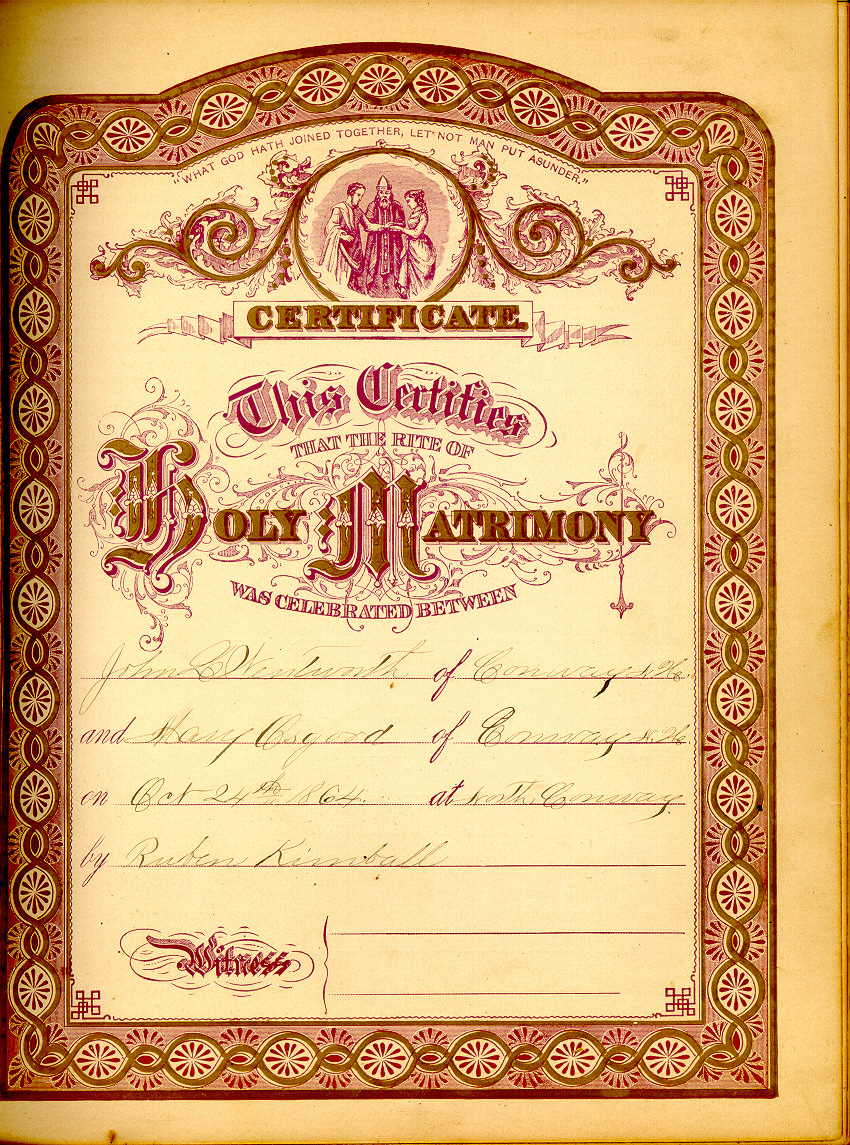 "WHAT GOD HATH JOINED TOGETHER, LET NOT MAN PUT ASUNDER."
CERTIFICATE.
This Certifies
THAT THE RITE OF
HOLY MATRIMONY
WAS CELEBRATED BETWEEN
John C Wentworth of Conway N.H.
and Mary Osgood of Conway N.H.
on Oct 24th 1864. at North Conway
by Ruben Kimball
Witness